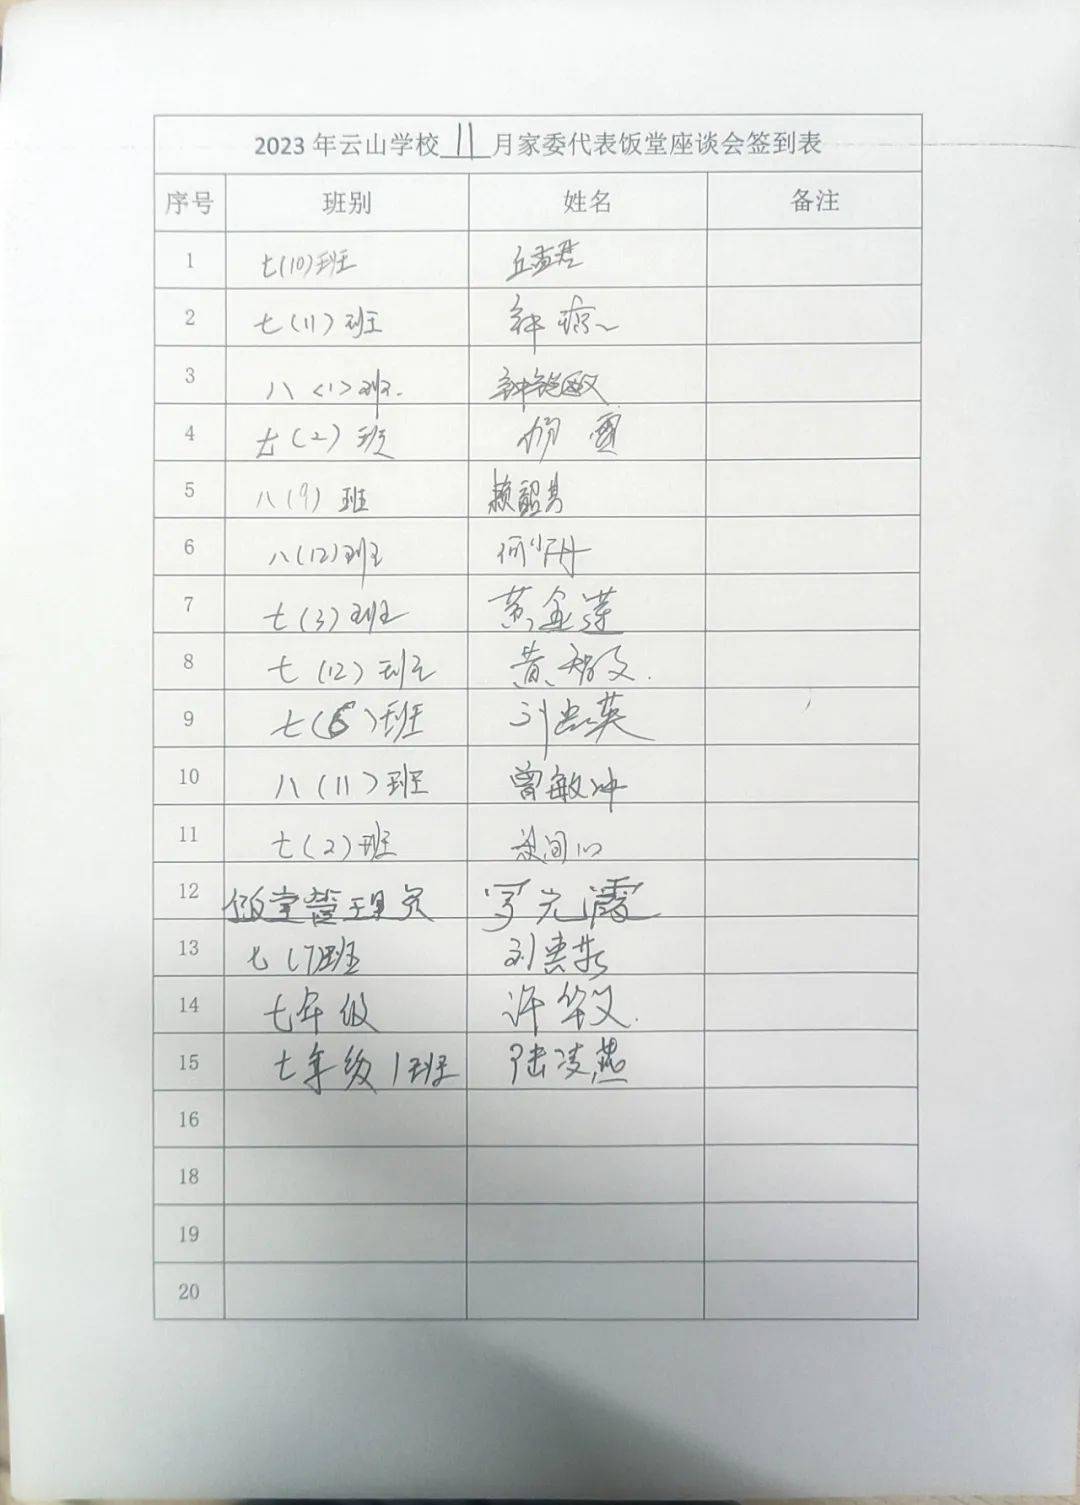 2023年云山学校 11 月家委代表饭堂座谈会签到表
序号 班别 姓名 备注
1 七(10)班 丘孟君
2 七(11)班 钟
3 八<1>班.
4 七(2)班 杨雪
5 八(9)班 赖韶
6 八(12)班 何小丹
7 七(3)班 黄金莲
8 七(12)班 黄
9 七(6)班 刘 英
10 八(11)班 曾敏冲
11 七(2)班
12 饭堂管理员 罗元霞
13 七(7)班 刘
14 七年级 许华文.
15 七年级1班 陆凌燕
16
18
19
20